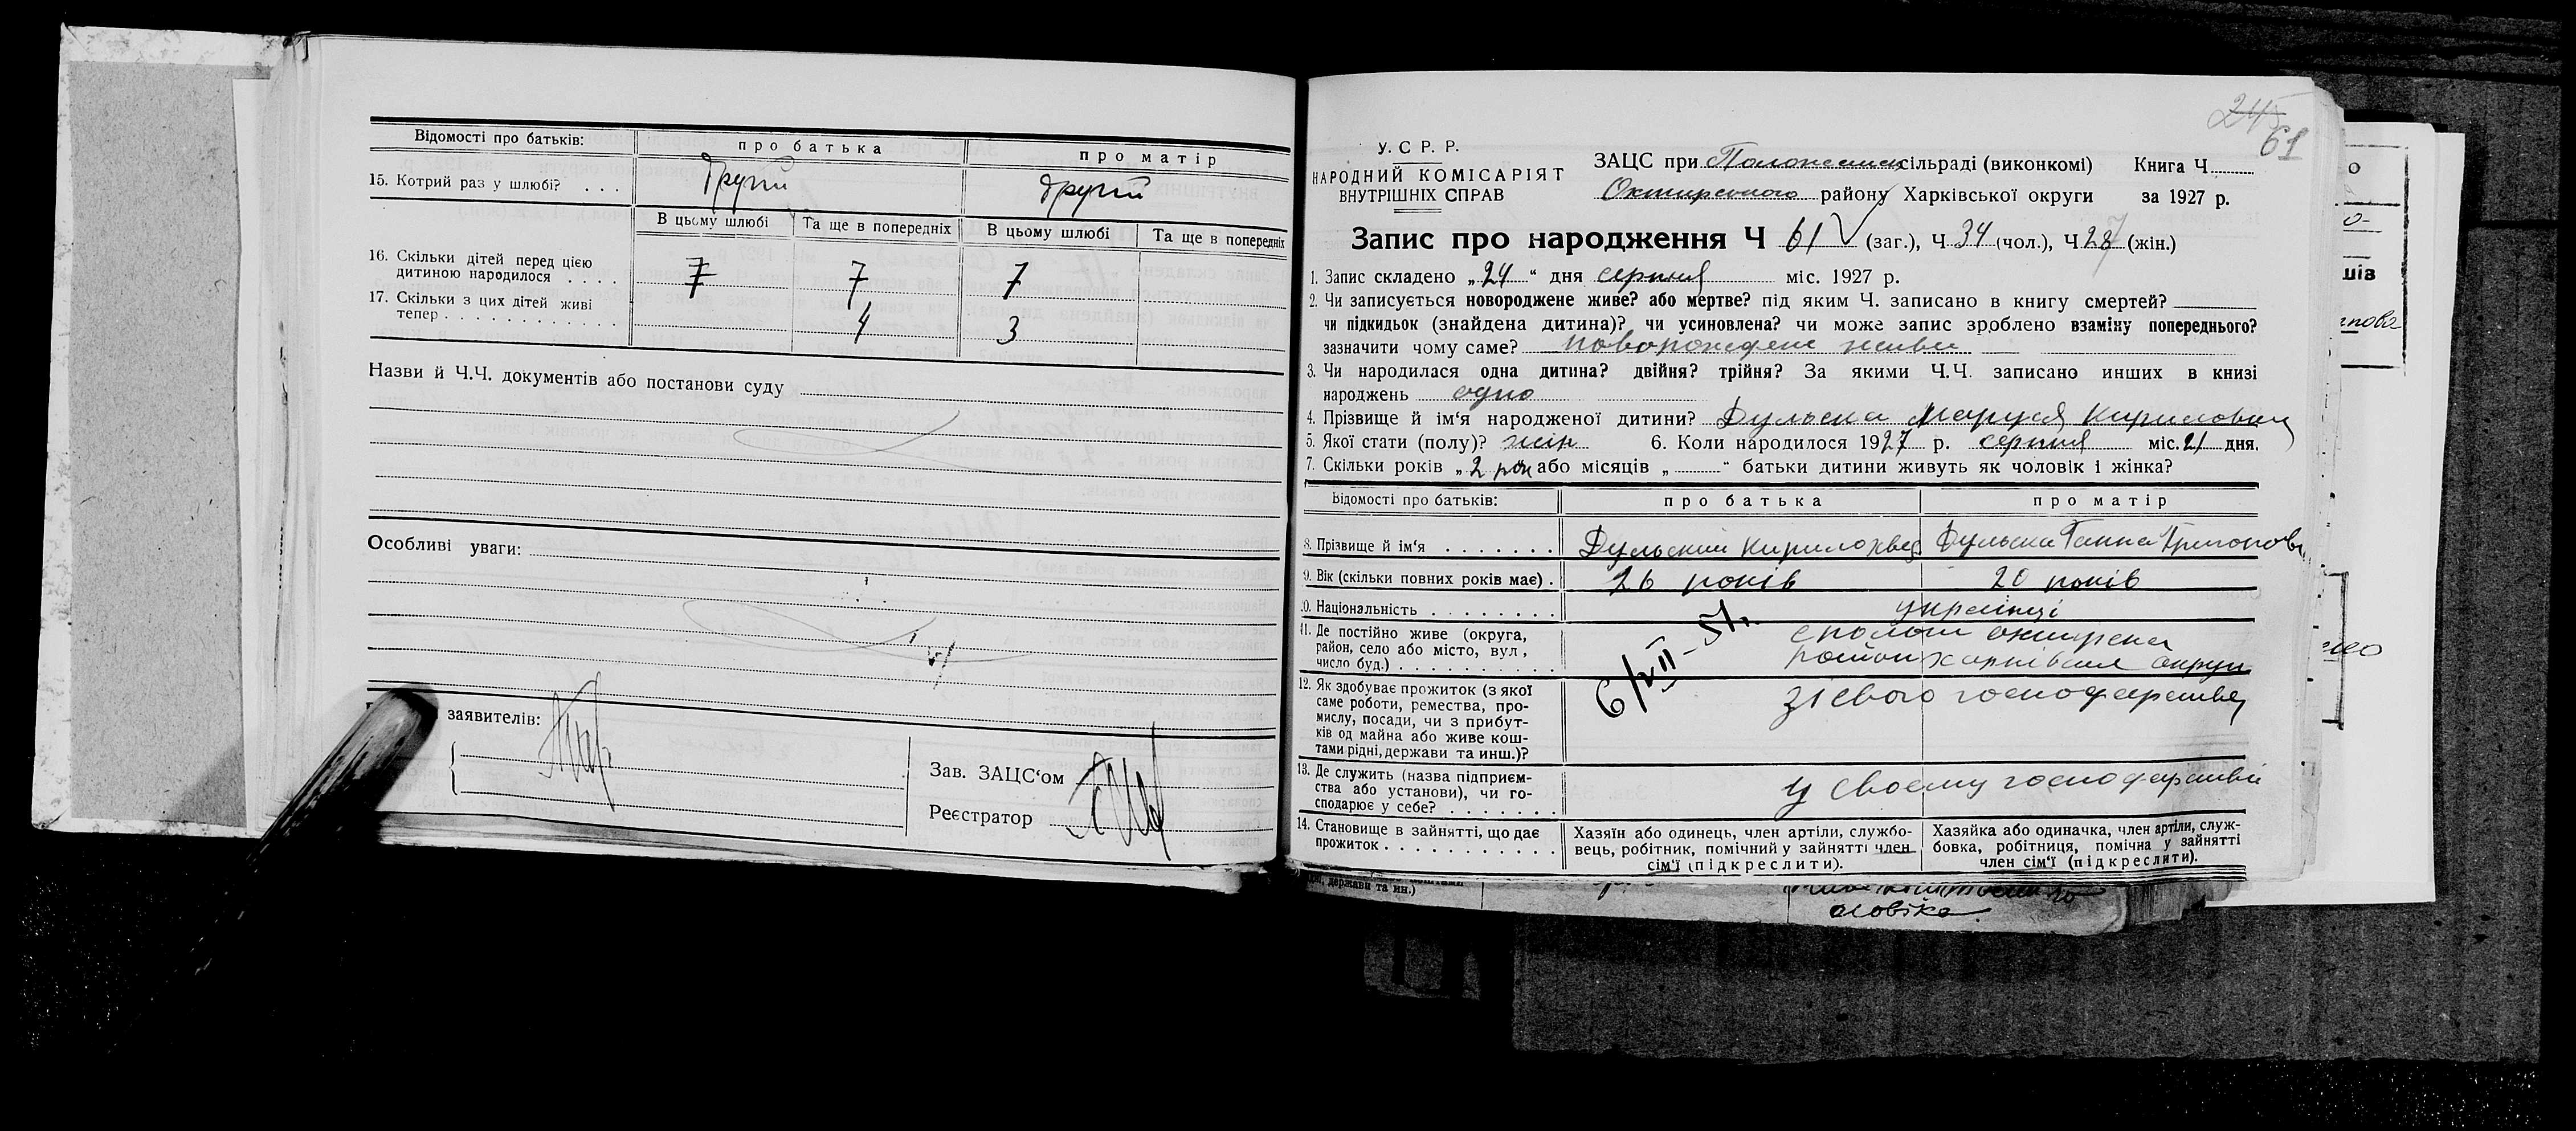 Відомості про батьків: про батька про матір
15. Котрий раз у шлюбі? . . . другий другий
В цьому шлюбі Та ще в попередніх В цьому шлюбі Та ще в попередніх
16. Скільки дітей перед цією
дитиною народилося . . . . 7 7 7
17. Скільки з цих дітей живі
тепер . . . . . . . . . . . . 4 3
Назви й Ч.Ч. документів або постанови суду
Особливі уваги:
заявителів:
Зав. ЗАЦС‘ом
Реєстратор
245
61
У. С Р. Р.
НАРОДНИЙ КОМІСАРІЯТ
ВНУТРІШНІХ СПРАВ
ЗАЦС при сільраді (виконкомі) Книга Ч
Охтирського району Харківської округи за 1927 р.
Запис про народження Ч 61 (заг.), Ч 34 (чол.), Ч 28 (жін.)
1. Запис складено „24“ дня серпня міс. 1927 р.
2. Чи записується новороджене живе? або мертве? під яким Ч. записано в книгу смертей?
чи підкидьок (знайдена дитина)? чи усиновлена? чи може запис зроблено взаміну попереднього?
зазначити чому саме? новорожден живе
3. Чи народилася одна дитина? двійня? трійня? За якими Ч.Ч. записано инших в книзі
народжень одно
4. Прізвище й ім‘я народженої дитини? Дульска Маруся Кириловна
5. Якої стати (полу)? жін 6. Коли народилося 1927 р. серпня міс. 21 дня.
7. Скільки років „2 рок або місяців „ “ батьки дитини живуть як чоловік і жінка?
Відомості про батьків: про батька про матір
8. Прізвище й ім‘я . . . . . . . Дульский Кирило Хвед Дульска Ганна
9. Вік (скільки повних років має) . 26 років 20 років
10. Національність . . . . . . . . українці
11. Де постійно живе (округа,
район, село або місто, вул,
число буд.) . . . . . . . . . . район харківська округи
12. Як здобуває прожиток (з якої
саме роботи, ремества, про-
мислу, посади, чи з прибут-
ків од майна або живе кош-
тами рідні, держави та инш.)? зі свого господарства
13. Де служить (назва підприєм-
ства або установи), чи го-
сподарює у себе? . . . . . . . у своєму господарстві
14. Становище в зайнятті, що дає
прожиток . . . . . . . . . . .
Хазяїн або одинець, член артіли, службо-
вець, робітник, помічний у зайнятті член
сім‘ї (підкреслити).
Хазяйка або одиначка, член артіли, служ-
бовка, робітниця, помічна у зайнятті
член сім‘ї (підкреслити).
держави та ин.)